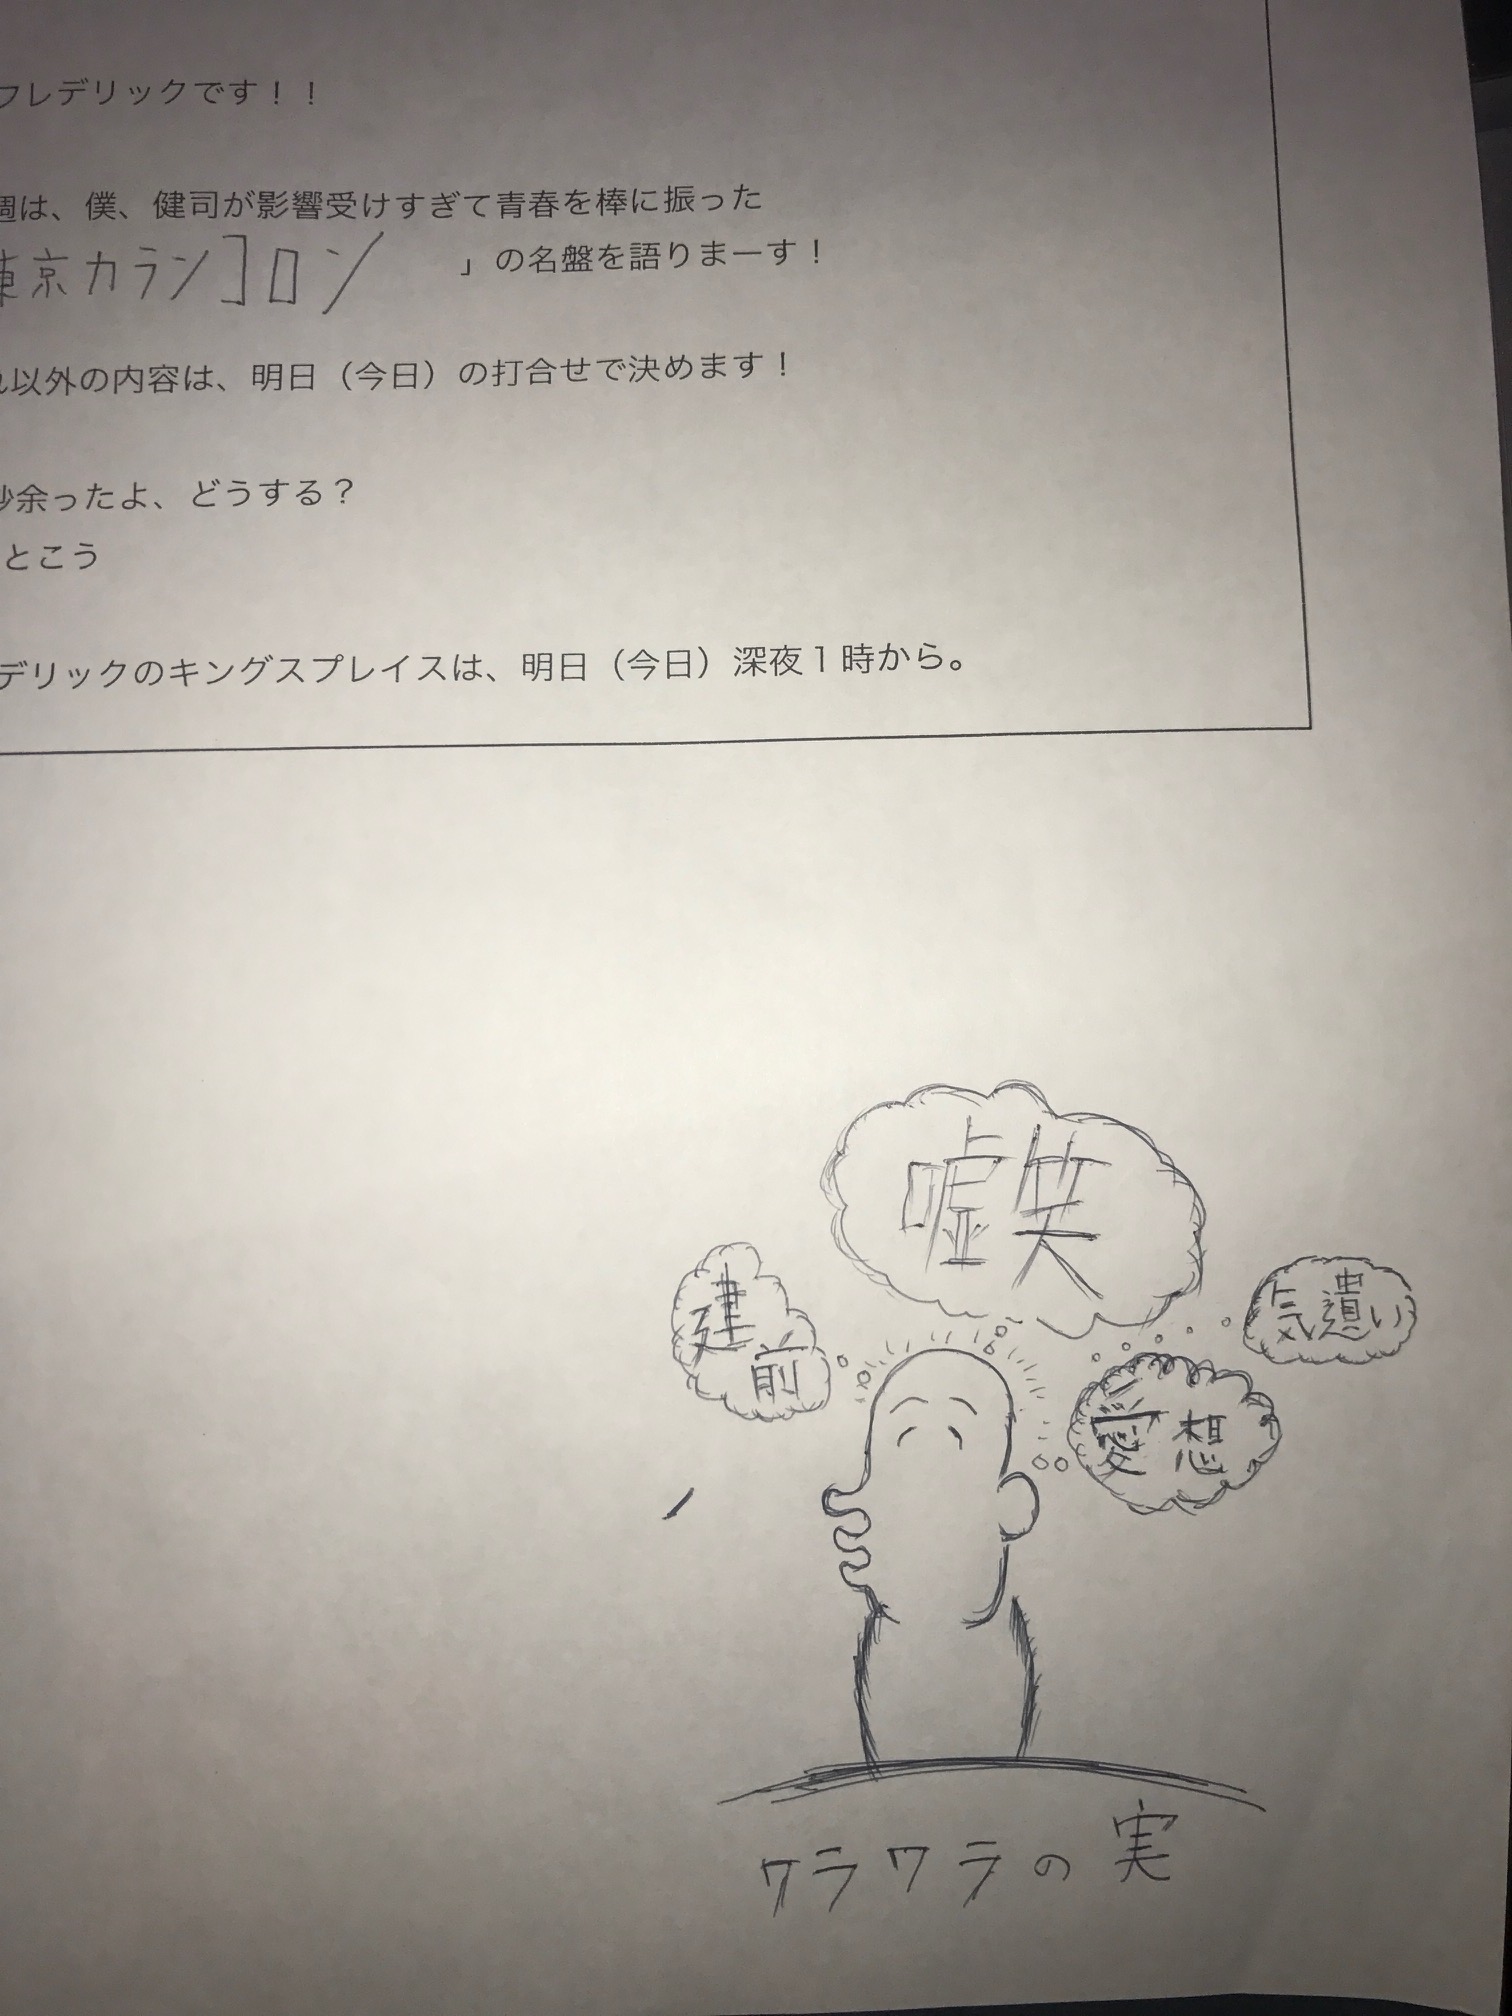 フレデリックです！！
週は、僕、健司が影響受けすぎて青春を棒に振った
東京カランコロン 」の名盤を語りまーす！
れ以外の内容は、明日（今日）の打合せで決めます！
秒余ったよ、どうする？
とこう
デリックのキングスプレイスは、明日（今日）深夜１時から。
嘘笑
建前
気遣い
愛想
ワラワラの実